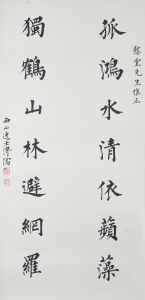 慈堂先生惟正
孤鴻水清依蘋藻
獨鶴山林避網羅
西山逸士溥儒